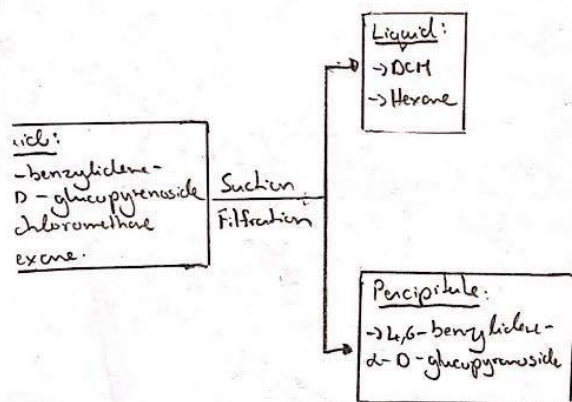 uid:
-benzylidene-
D-glucopyranoside
chloromethane
exane.
Suction
Filtration
Liquid:
→DCM
→Hexane
Percipitate:
→4,6-benzylidene-
α-D-glucopyranoside